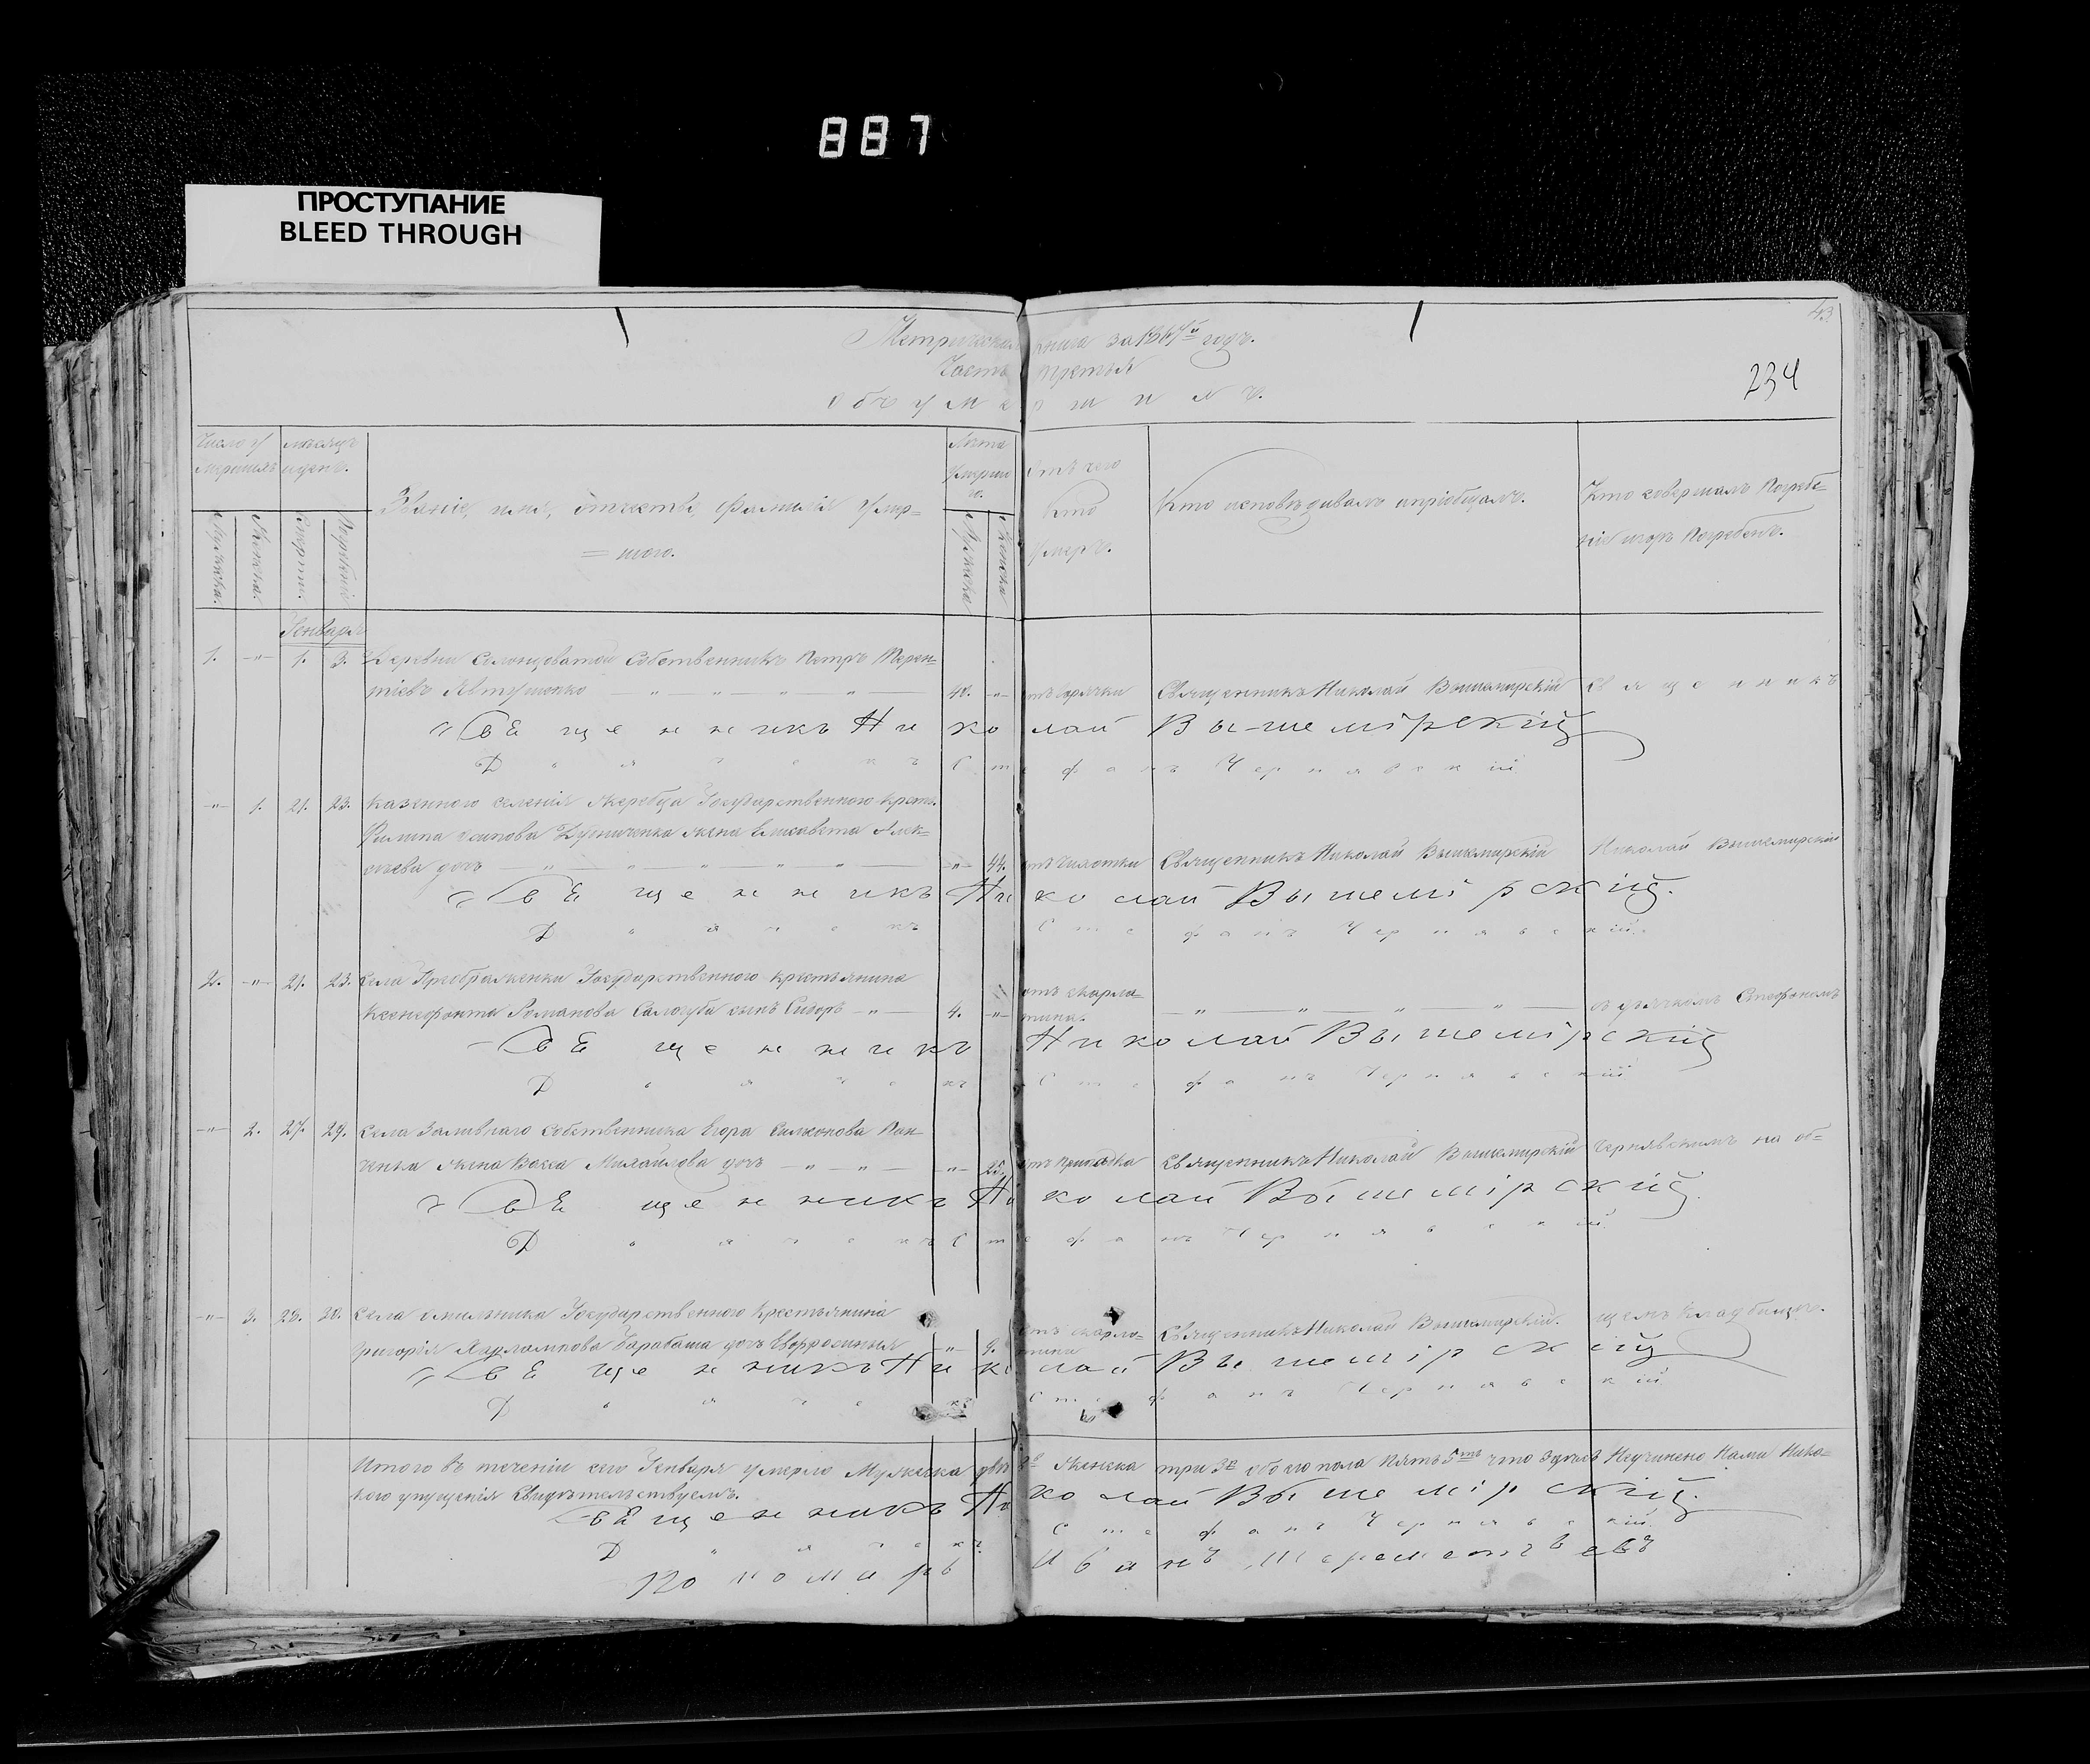 887
ПРОСТУПАНИЕ
BLEED THROUGH
43
234
Метрическая книга за 1867й годъ.
Часть третья
объ умершихъ.
Число умершихъ
мѣсяцъ и день.
Мужска.
Женска.
Смерти.
Погребенія
Званіе, имя, отчество, фамилія умер=
=шого.
Лѣта умершаго.
Мужска
Женска
Отъ чего
Кто
умеръ.
Кто исповѣдывалъ и пріобщалъ.
Кто совершалъ Погребе=
ніе и гдѣ Погребенъ.
Генваря
1. -"- 1. 3. Деревни Солонцоватой Собственникъ Петръ Терен=
тіевъ Явтушенко 40. -"- отъ горячки Священникъ Николай Вышемирскій Священникъ
Священникъ Николай Вышемірскій
Дьячекъ Стефанъ Чернявскій
-"- 1. 21. 23. Казенного селенія Жеребца Государственного крест.
Филипа Осипова жена Елисавета Алек=
сѣева дочь -"- 44. отъ чахотки Священникъ Николай Вышемирскій Николай Вышемирскій
Священникъ Николай Вышемірскій.
Дьячекъ Стефанъ Чернявскій.
2. -"- 21. 23. Села Преображенки Государственного крестьянина
Ксенофонта Романова Сологуба сынъ Сидоръ -"- 4. -"- отъ скарла=
тина. съ дьячкомъ Стефаномъ
Священникъ Николай Вышемірскій
Дьячекъ Стефанъ Чернявскій
-"- 2. 27. 29. Села Заливнаго собственника Егора Симонова Пан=
ченка жена Васса Михайлова дочь -"- 25. отъ припадка Священникъ Николай Вышемирскій Чернявскимъ на об=
Священникъ Николай Вышемірскій.
Дьячекъ Стефанъ Чернявскій
-"- 3. 28. 30. Села Омельника Государственного Крестьянина
Григорія Харлампова Барабаша дочь Евфросинья -"- 9. отъ скарла=
тина Священникъ Николай Вышемирскій. щемъ кладбищѣ.
Священникъ Николай Вышемірскій
Дьячекъ Стефанъ Чернявскій
Итого въ теченіи сего Генваря умерло Мужеска два 2е Женска три 3и обоего пола Пять 5ть что здѣсь Неучинено Нами Ника=
кого упущенія Свидѣтельствуемъ.
Священникъ Николай Вышемірскій.
Дьячекъ Стефанъ Чернявскій
Пономарь Иванъ